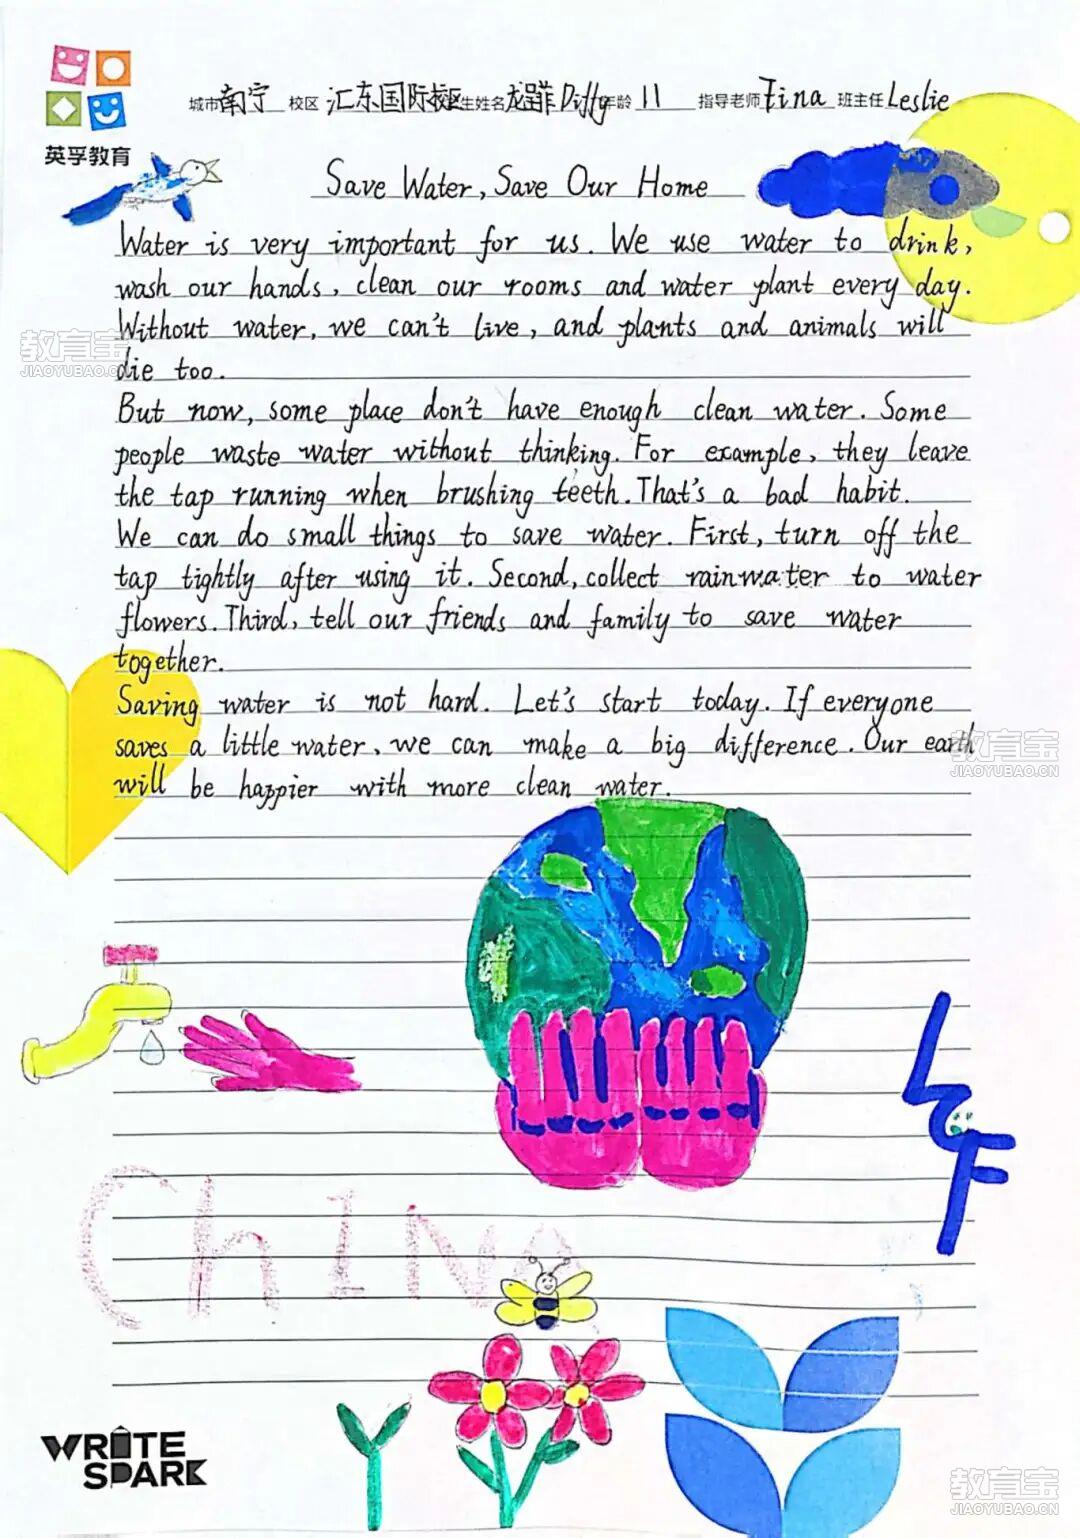 城市南宁 校区 汇东国际校区 学生姓名 龙 菲 Diffy 年龄 11 指导老师 Tina 班主任 Leslie
英孚教育
Save Water, Save Our Home
Water is very important for us. We use water to drink,
wash our hands, clean our rooms and water plant every day.
Without water, we can't live, and plants and animals will
die too.
But now, some place don't have enough clean water. Some
people waste water without thinking. For example, they leave
the tap running when brushing teeth. That's a bad habit.
We can do small things to save water. First, turn off the
tap tightly after using it. Second, collect rainwater to water
flowers. Third, tell our friends and family to save water
together.
Saving water is not hard. Let's start today. If everyone
saves a little water, we can make a big difference. Our earth
will be happier with more clean water.
ChINa
WRITE
SPARK
教育宝
JIAOYUBAO.CN
教育宝
JIAOYUBAO.CN
教育宝
JIAOYUBAO.CN